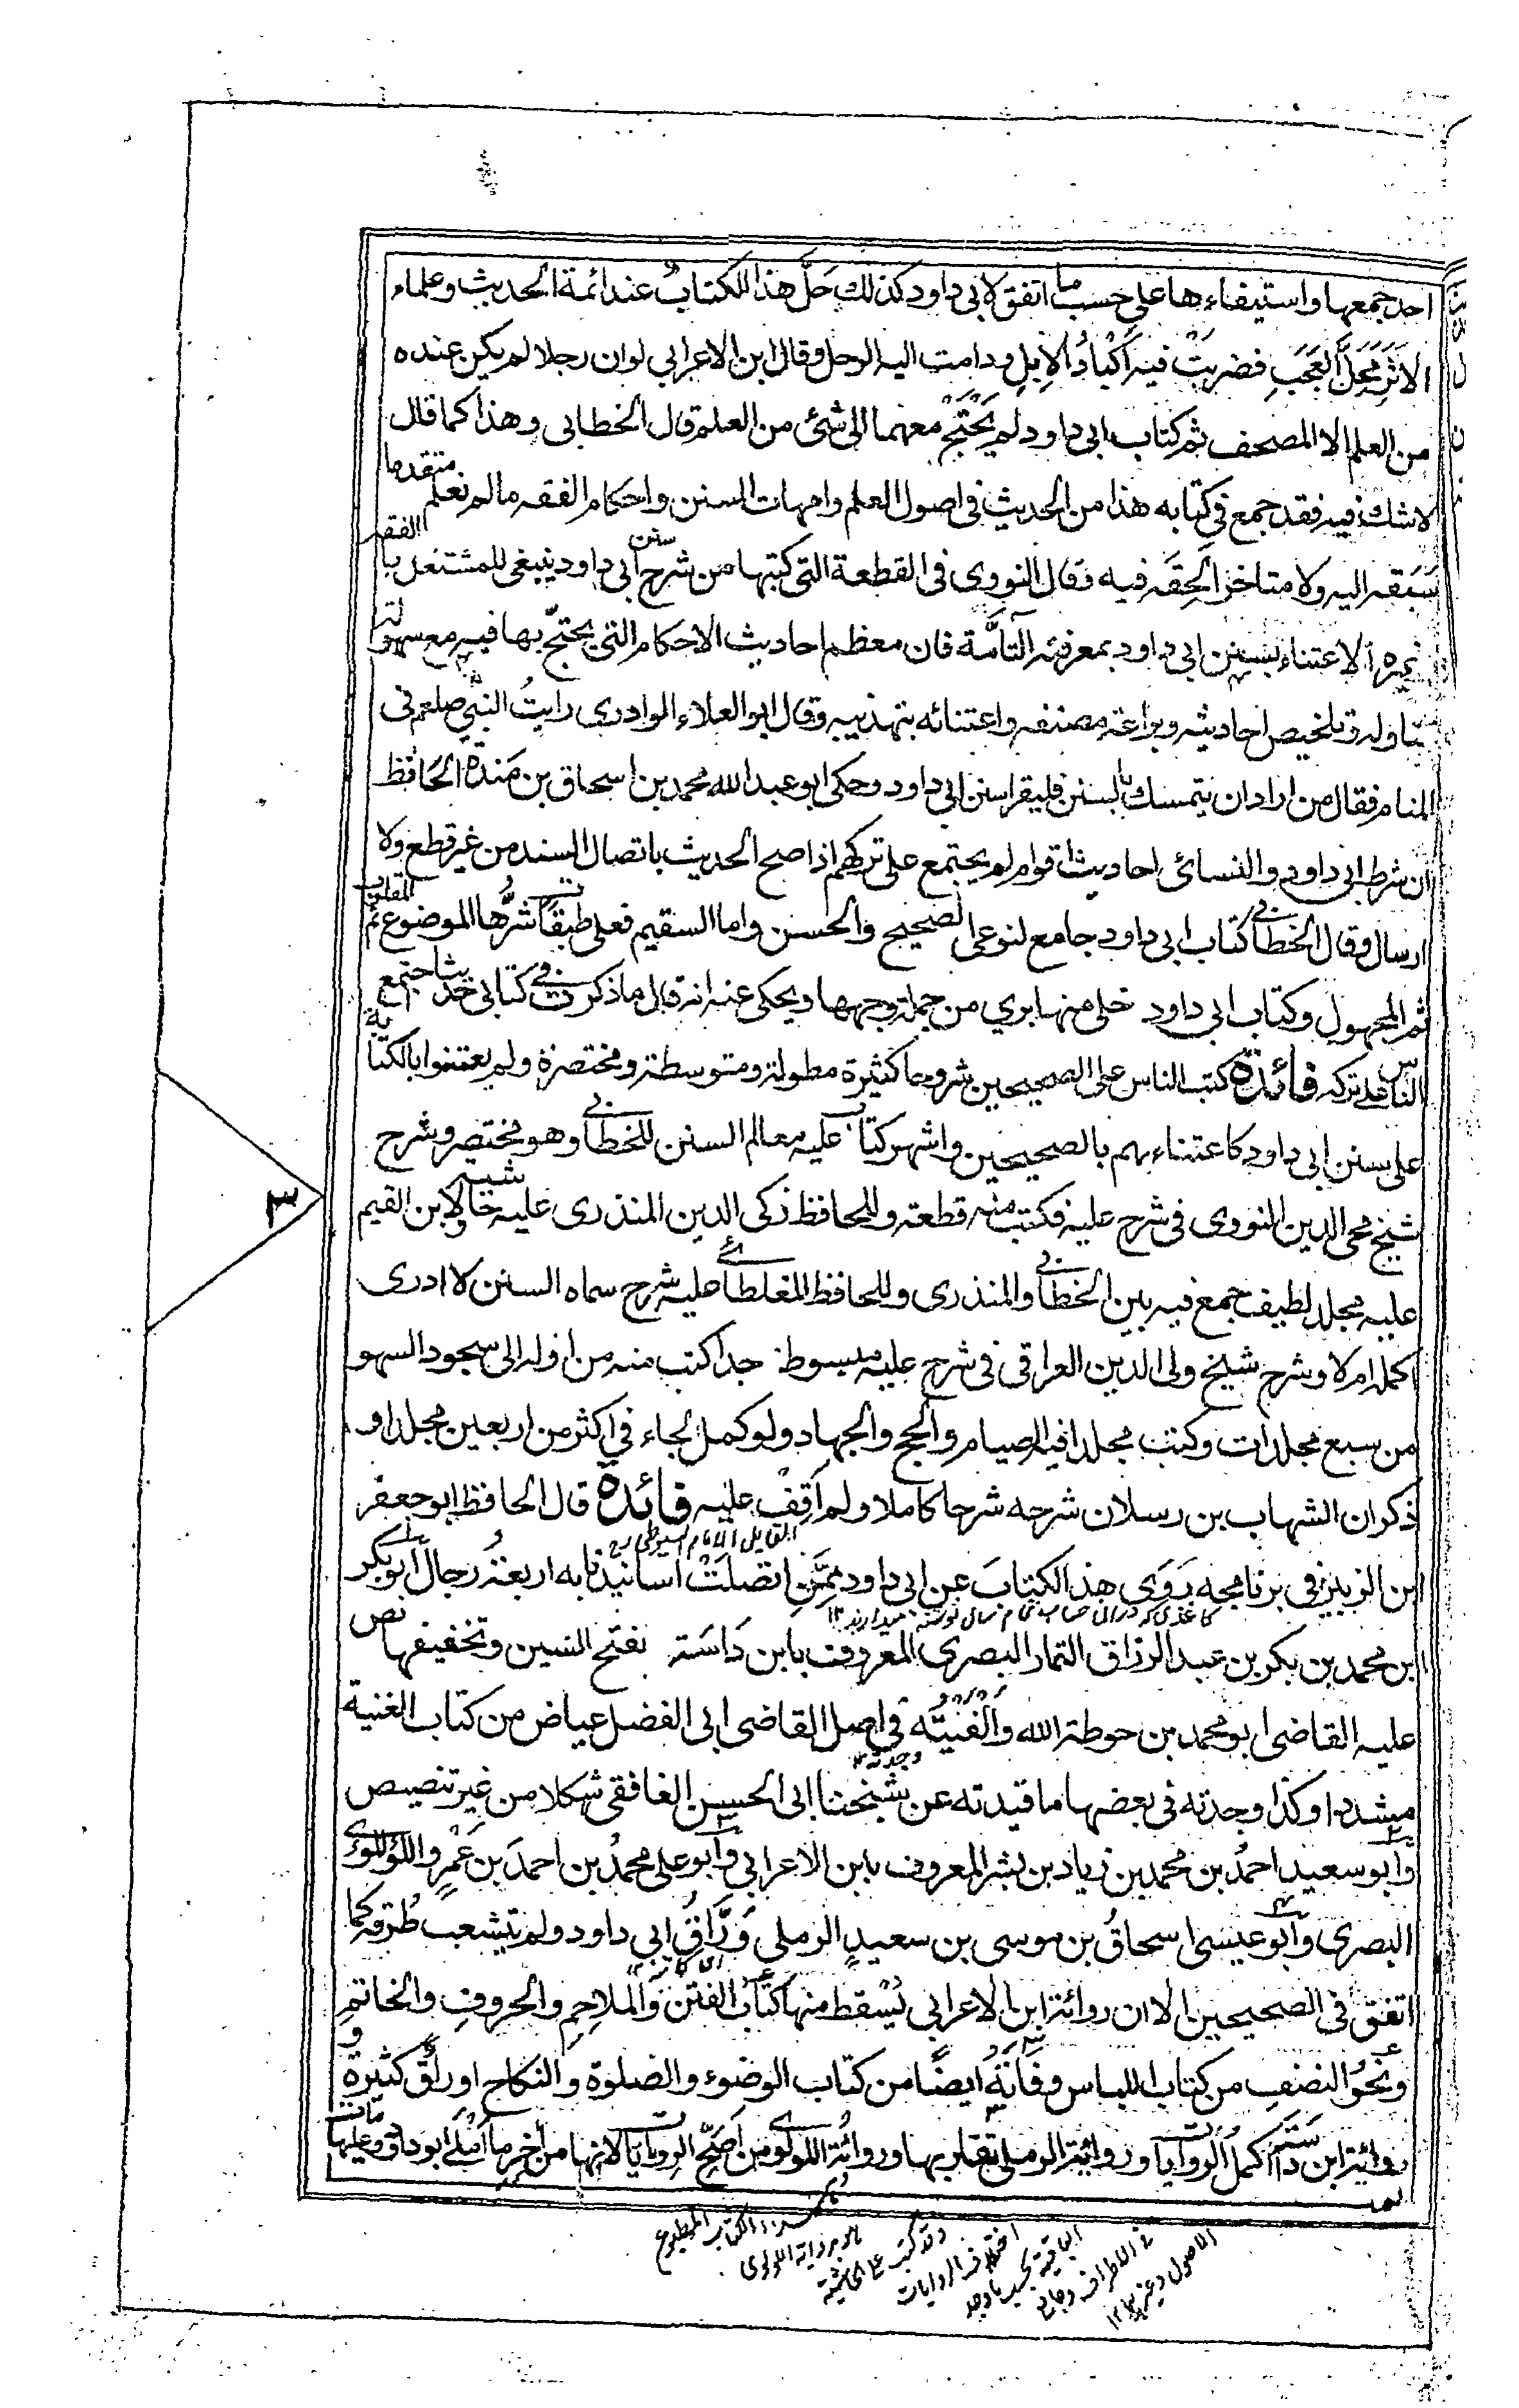 احد جمعها واستيفاءها على حسب ما اتفق لابی داود كذلك حَلَّ هذا الكتابُ عند ائمة الحديث وعلماء
الاثَرِ مَحَلَّ العَجَبِ فضربَتْ فيه اَكْبَادُ الاِبِلِ ودامت اليه الرحل وقال ابن الاعرابي لو ان رجلا لم يكن عنده
من العلم الا المصحف ثم كتاب ابی داود لم يَحْتَجْ معهما الى شئ من العلم قال الخطابی وهذا كما قال
لا شك فيه فقد جمع في كتابه هذا من الحديث في اصول العلم وامهات السنن واحكام الفقه ما لم نعلم متقدما
سَبَقه اليه ولا متاخرا لَحِقَه فيه وقال النووى فى القطعة التى كتبها من شرح سنن ابی داود ينبغى للمشتغل بالفقه
وغيره الاعتناء بسنن ابی داود بمعرفته التامَّة فان معظم احاديث الاحكام التى يحتجّ بها فيه مع سهولة
تناوله وتلخيص احاديثه وبراعة مصنفه واعتنائه بتهذيبه وقال ابو العلاء الوادرى رايتُ النبي صلعم فى
المنام فقال من اراد ان يتمسك بالسنن فليقرا سنن ابی داود وحكى ابو عبد الله محمد بن اسحاق بن مَندة الحافظ
ان شرط ابی داود والنسائی احاديث اقوام لم يجتمع على تركهم اذا صح الحديث باتصال السند من غير قطع ولا
ارسال وقال الخطابی كتاب ابی داود جامع لنوعى الصحيح والحسن واما السقيم فعلى طبقات شرُّها الموضوع ثم المقلوب
ثم المجهول وكتاب ابی داود خلى منها برى من جملة وجهها ويحكى عنه انه قال ما ذكرت فی كتابی حديثا اجتمع
الناس على تركه فائدة كتب الناس على الصحيحين شروحا كثيرة مطولة ومتوسطة ومختصرة ولم يعتنوا بالكتابة
على سنن ابی داود كاعتناءهم بالصحيحين واشهر كتاب عليه معالم السنن للخطابی وهو مختصر وشرح
شيخ محى الدين النووى فى شرح عليه فكتب منه قطعة وللحافظ زكى الدين المنذرى عليه حاشية ولابن القيم
عليه مجلد لطيف جمع فيه بين الخطابی والمنذرى وللحافظ المغلطائے عليه شرح سماه السنن لا ادرى
اكمله ام لا وشرح شيخ ولى الدين العراقى فى شرح عليه مبسوط جدا كتب منه من اوله الى سجود السهو
من سبع مجلدات وكتب مجلدا فيه الصيام والحج والجهاد ولو كمل لجاء في اكثر من اربعين مجلدا و
ذكر ان الشهاب بن رسلان شرحه شرحا كاملا ولم اَقِفْ عليه فائده قال الحافظ ابو جعفر
القايل الامام السيوطى رح
ابن الزبير فی برنامجه رَوَى هذا الكتابَ عن ابی داود ممَّنِ اتصلَتْ اسانيدنا به اربعةُ رجال ابو بكر
كاغذى كه دران حساب تمام سال نوشته ميدارند ١٢
ابن محمد بن بكر بن عبد الرزاق التمار البصرى المعروف بابن دَاسَة بفتح السين وتخفيفها نص
عليه القاضى ابو محمد بن حوطة الله والفَيْتُه فی اصل القاضى ابی الفضل عياض من كتاب الغنية
وجدته ١٢
مشددا وكذا وجدته فى بعضها ما قيدته عن شيخنا ابی الحسن الغافقى شكلا من غير تنصيص
وابو سعيد احمدُ بن محمد بن زياد بن بشر المعروف بابن الاعرابی وابو على محمدُ بن احمدَ بن عَمْرٍو اللؤلؤى
البصرى وابو عيسى اسحاقُ بن موسى بن سعيدٍ الرملى وَرَّاقُ ابی داود ولم تتشعب طُرقه كما
اى كاتبه ١٢
اتفق فى الصحيحين الا ان روائة ابن الاعرابی يَسْقط منها كتابُ الفتن والملاحِمِ والحروفِ والخاتمِ
ونحوُ النصف من كتاب اللباس وفاتَهُ ايضًا من كتاب الوضوء والصلوة والنكاح اوراق كثيرة و
روائة ابن داسَة اكملُ الروايات وروائة الرملى تقاربها وروائةُ اللؤلؤى من اَصَحِّ الروايات لانها من اٰخرِ ما اَمْلٰے ابو داود وعليها مات
٣
هذا الكتاب المطبوع
هو بروائة اللولوى
وقد كتب على الحاشية
اختلاف الروايات
الباقية بحسب ما وجد
فى الاطراف وجامع
الاصول وغيرهما ١٢